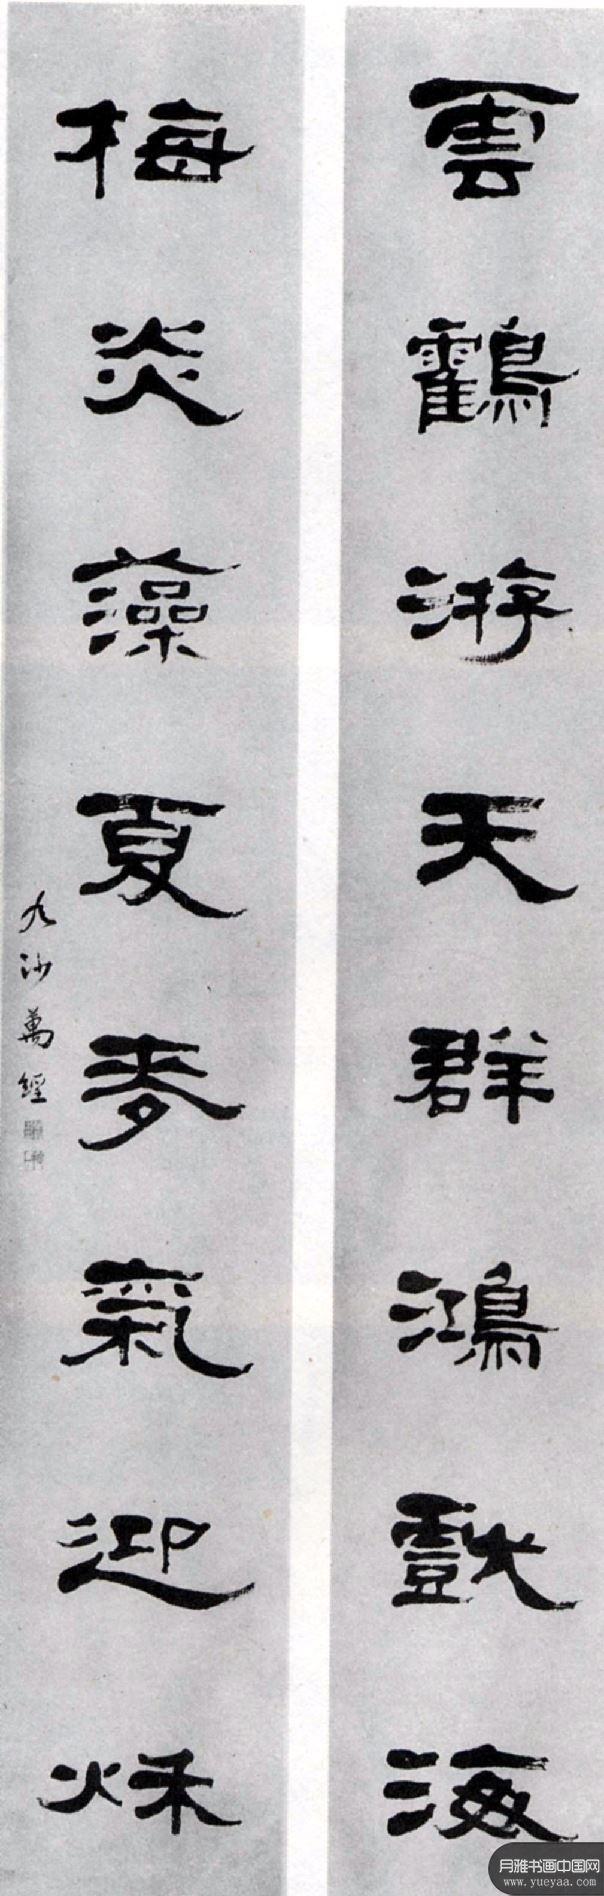 雲鸖游天群鴻戲海
梅炎藻夏麦氣迎秌
九沙萬經
月雅书画中国网
www.yueyaa.com